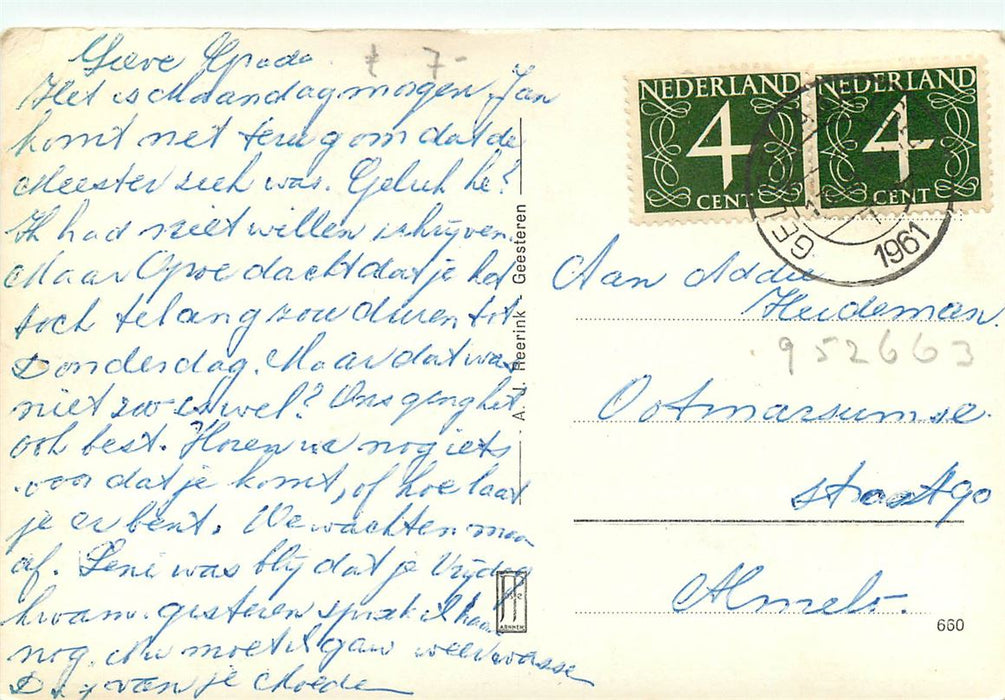 Lieve
£ 7-
Het is Maandagmorgen, Jan
komt niet terug om dat de
Meester ziek was. Geluk he?
Ik had niet willen schrijven.
Maar Opoe dacht dat je het
toch te lang zou duren tot
Donderdag. Maar dat was
niet zoo es wel? Ons ging het
ook best. Horen we nog iets
voor dat je komt, of hoe laat
je er bent. We wachten maar
af. Leni was blij dat je Vrijdag
kwam. gisteren sprak ik haar
nog. Nu moet ik gaan weer wasse
Dag van je Moeder
A. J. Reerink - Geesteren
ARNHEM
NEDERLAND
4
CENT
NEDERLAND
4
CENT
1961
Aan Addie
Heideman.
952663
Ootmarsumse
straat 90
Almelo.
660